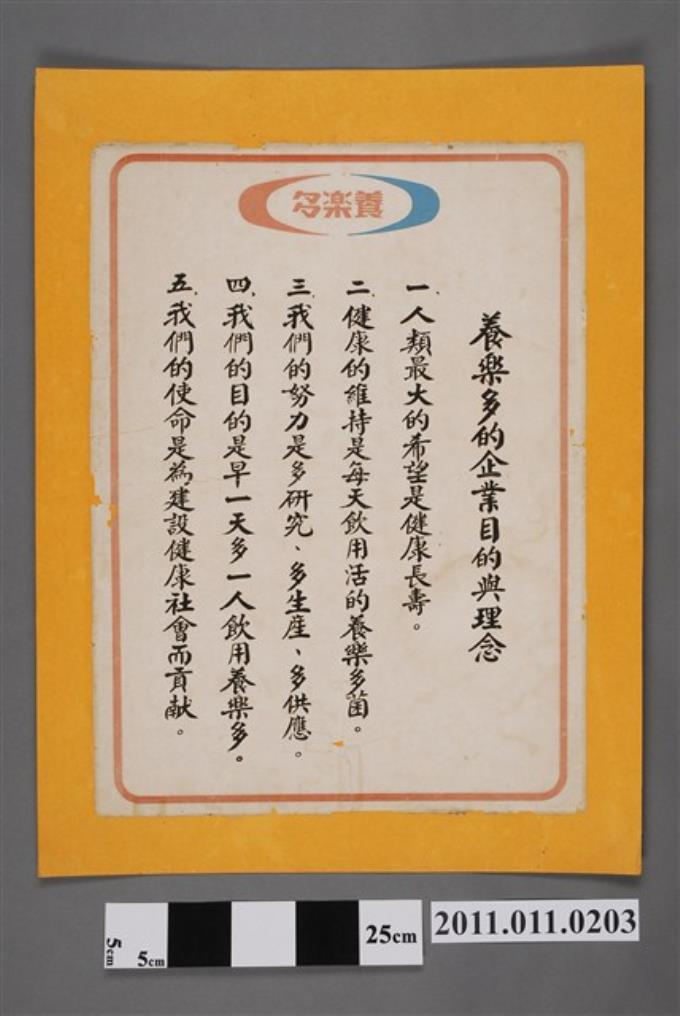 養楽多
養樂多的企業目的與理念
一、人類最大的希望是健康長壽。
二、健康的維持是每天飲用活的養樂多菌。
三、我們的努力是多研究、多生產、多供應。
四、我們的目的是早一天多一人飲用養樂多。
五、我們的使命是為建設健康社會而貢献。
5cm
5cm
25cm
2011.011.0203